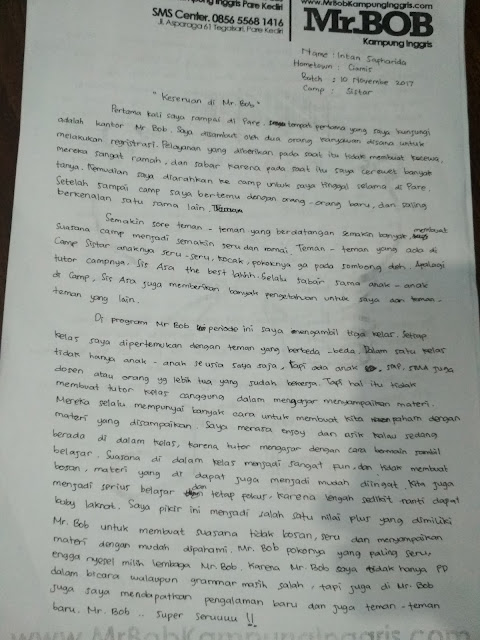 Kampung Inggris Pare Kediri
SMS Center. 0856 5568 1416
Jl. Asparaga 61 Tegalsari, Pare Kediri
www.MrBobKampungInggris.com
Mr.BOB
Kampung Inggris
Name : Intan Sapharida
Hometown : Ciamis
Batch : 10 November 2017
Camp : Sistar
" Keseruan di Mr. Bob "
Pertama kali saya sampai di Pare. tempat pertama yang saya kunjungi
adalah kantor Mr Bob. Saya disambut oleh dua orang karyawan disana untuk
melakukan registrasi. Pelayanan yang diberikan pada saat itu tidak membuat kecewa,
mereka sangat ramah, dan sabar karena pada saat itu saya cerewet banyak
tanya. Kemudian saya diarahkan ke camp untuk saya tinggal selama di Pare.
Setelah sampai camp saya bertemu dengan orang-orang baru, dan saling
berkenalan satu sama lain.
Semakin sore teman-teman yang berdatangan semakin banyak, membuat
suasana camp menjadi semakin seru dan ramai. Teman-teman yang ada di
Camp Sistar anaknya seru-seru, kocak, pokoknya ga pada sombong deh. Apalagi
tutor campnya. Sis Asa the best lahhh. Selalu sabar sama anak-anak
di Camp, Sis Asa juga memberikan banyak pengetahuan untuk saya dan teman-
teman yang lain.
Di program Mr Bob periode ini saya mengambil tiga kelas. Setiap
kelas saya dipertemukan dengan teman yang berbeda-beda. Dalam satu kelas
tidak hanya anak-anak seusia saya saja, tapi ada anak SMP, SMA juga
dosen atau orang yg lebih tua yang sudah bekerja. Tapi hal itu tidak
membuat tutor kelas canggung dalam mengajar menyampaikan materi.
Mereka selalu mempunyai banyak cara untuk membuat kita paham dengan
materi yang disampaikan. Saya merasa enjoy dan asik kalau sedang
berada di dalam kelas, karena tutor mengajar dengan cara bermain sambil
belajar. Suasana di dalam kelas menjadi sangat fun, dan tidak membuat
bosan, materi yang di dapat juga menjadi mudah diingat. Kita juga
menjadi serius belajar dan tetap fokus, karena lengah sedikit nanti dapat
kuby laknat. Saya pikir ini menjadi salah satu nilai plus yang dimiliki
Mr. Bob untuk membuat suasana tidak bosan, seru dan menyampaikan
materi dengan mudah dipahami. Mr. Bob pokonya yang paling seru,
engga nyesel milih lembaga Mr. Bob. Karena Mr. Bob saya tidak hanya PD
dalam bicara walaupun grammar masih salah, tapi juga di Mr. Bob
juga saya mendapatkan pengalaman baru dan juga teman-teman
baru. Mr. Bob .. super seruuuu !!
www.MrBobKampungInggris.com